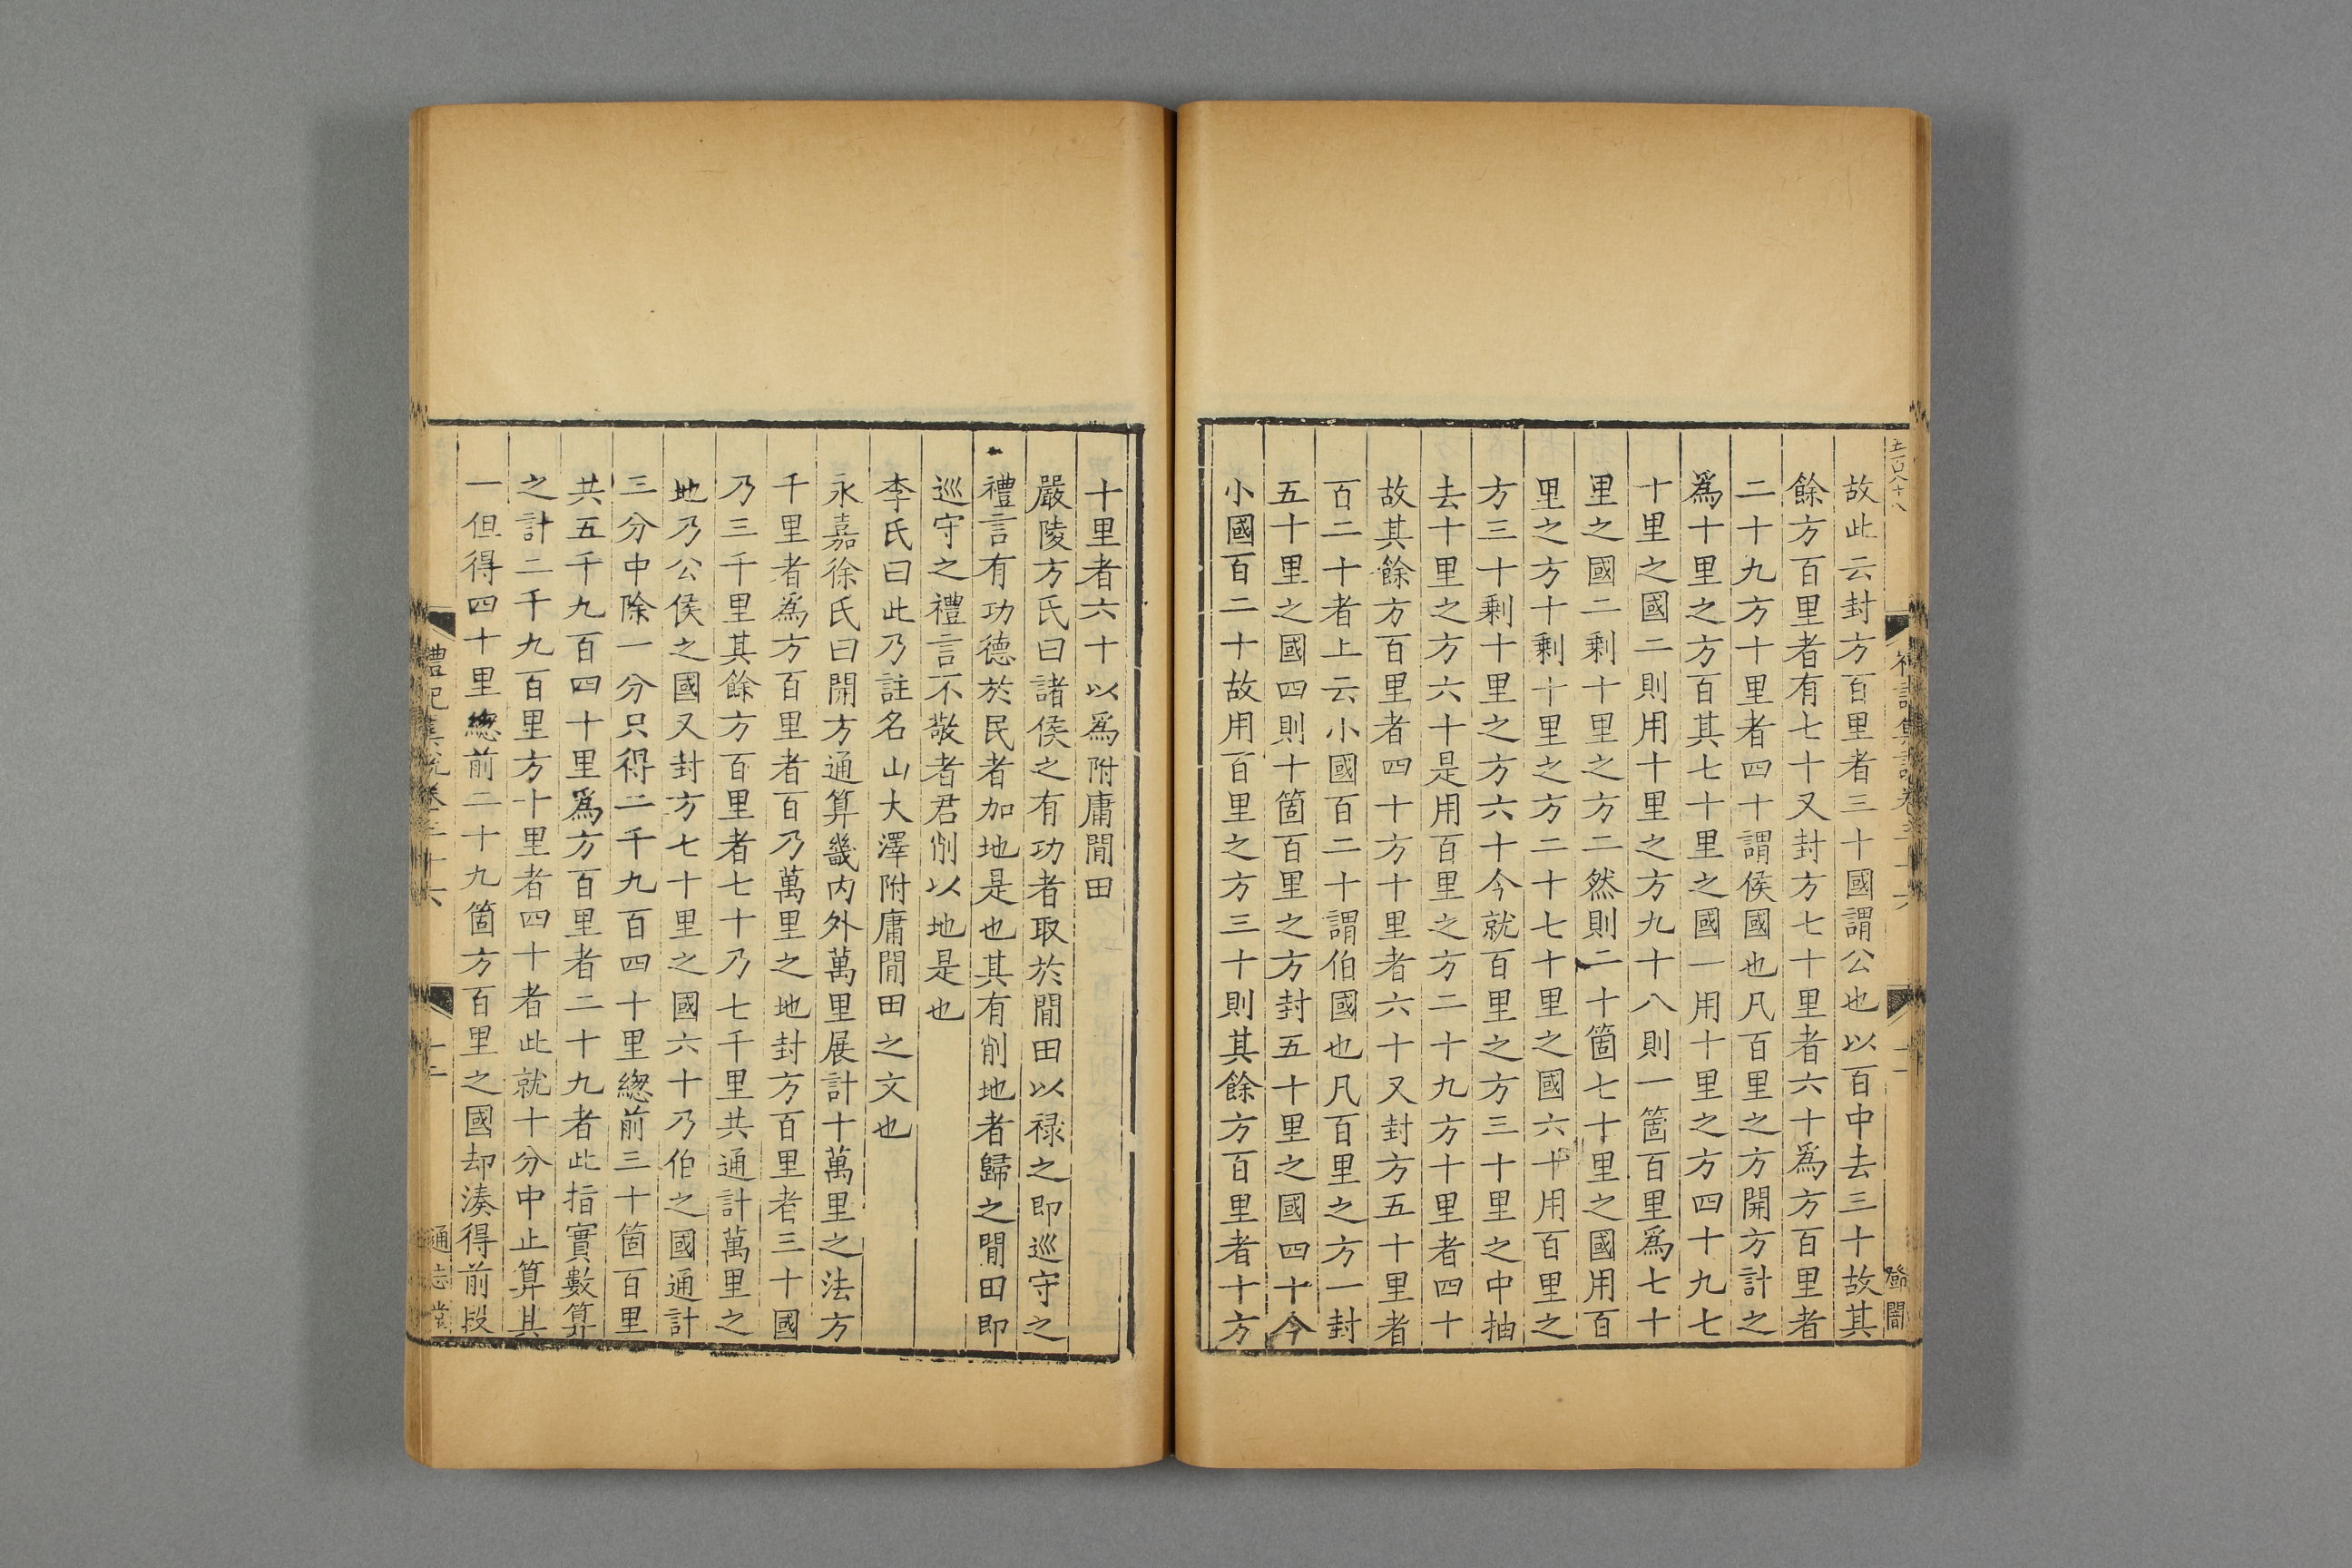 五百八十八
禮記集說卷三十六
十一
故此云封方百里者三十國謂公也以百中去三十故其
餘方百里者有七十又封方七十里者六十爲方百里者
二十九方十里者四十謂侯國也凡百里之方開方計之
爲十里之方百其七十里之國一用十里之方四十九七
十里之國二則用十里之方九十八則一箇百里爲七十
里之國二剩十里之方二然則二十箇七十里之國用百
里之方十剩十里之方二十七十里之國六十用百里之
方三十剩十里之方六十今就百里之方三十里之中抽
去十里之方六十是用百里之方二十九方十里者四十
故其餘方百里者四十方十里者六十又封方五十里者
百二十者上云小國百二十謂伯國也凡百里之方一封
五十里之國四則十箇百里之方封五十里之國四十今
小國百二十故用百里之方三十則其餘方百里者十方
十里者六十以爲附庸閒田
嚴陵方氏曰諸侯之有功者取於閒田以禄之即巡守之
禮言有功德於民者加地是也其有削地者歸之閒田即
巡守之禮言不敬者君削以地是也
李氏曰此乃註名山大澤附庸閒田之文也
永嘉徐氏曰開方通算畿内外萬里展計十萬里之法方
千里者爲方百里者百乃萬里之地封方百里者三十國
乃三千里其餘方百里者七十乃七千里共通計萬里之
地乃公侯之國又封方七十里之國六十乃伯之國通計
三分中除一分只得二千九百四十里緫前三十箇百里
共五千九百四十里爲方百里者二十九者此指實數算
之計二千九百里方十里者四十者此就十分中止算其
一但得四十里緫前二十九箇方百里之國却湊得前段
禮記集說卷三十六
十一
通志堂